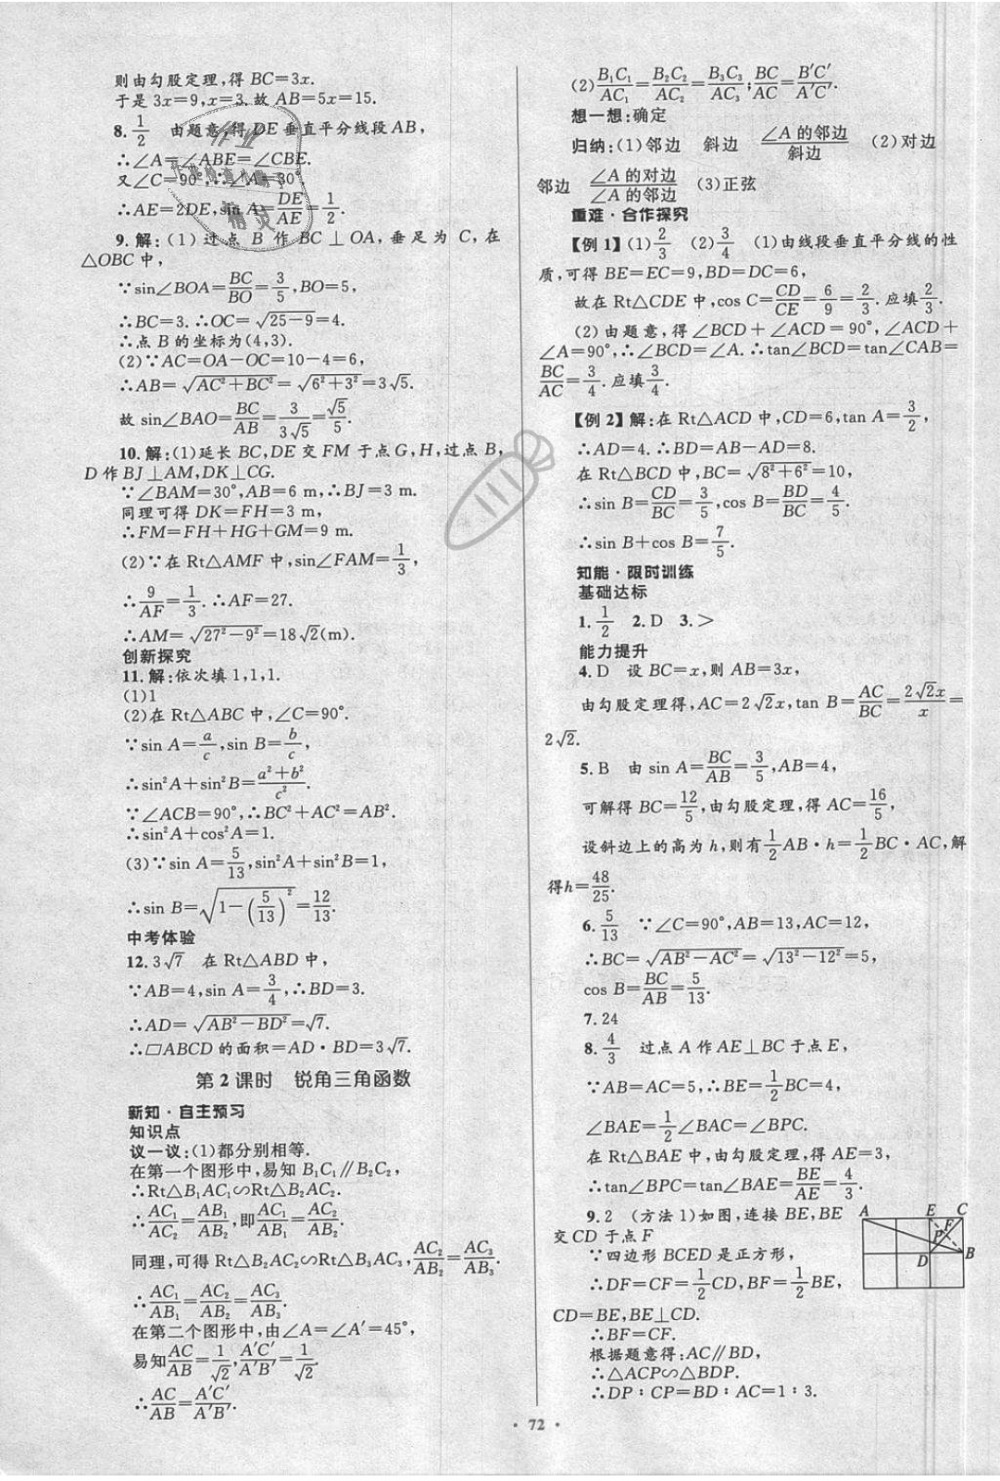 则由勾股定理,得 BC=3x.
于是 3x=9,x=3.故 AB=5x=15.
8. 1/2 由题意,得 DE 垂直平分线段 AB,
∴∠A=∠ABE=∠CBE.
又∠C=90°,∴∠A=30°.
∴AE=2DE,sin A=DE/AE=1/2.
9. 解:(1)过点 B 作 BC⊥OA,垂足为 C,在
△OBC 中,
∵sin∠BOA=BC/BO=3/5,BO=5,
∴BC=3.∴OC=√(25-9)=4.
∴点 B 的坐标为(4,3).
(2)∵AC=OA-OC=10-4=6,
∴AB=√(AC²+BC²)=√(6²+3²)=3√5.
故 sin∠BAO=BC/AB=3/(3√5)=√5/5.
10. 解:(1)延长 BC,DE 交 FM 于点 G,H,过点 B,
D 作 BJ⊥AM,DK⊥CG.
∵∠BAM=30°,AB=6 m,∴BJ=3 m.
同理可得 DK=FH=3 m,
∴FM=FH+HG+GM=9 m.
(2)∵在 Rt△AMF 中,sin∠FAM=1/3,
∴9/AF=1/3.∴AF=27.
∴AM=√(27²-9²)=18√2(m).
创新探究
11. 解:依次填 1,1,1.
(1)1
(2)在 Rt△ABC 中,∠C=90°.
∵sin A=a/c,sin B=b/c,
∴sin²A+sin²B=(a²+b²)/c².
∵∠ACB=90°,∴BC²+AC²=AB².
∴sin²A+cos²A=1.
(3)∵sin A=5/13,sin²A+sin²B=1,
∴sin B=√(1-(5/13)²)=12/13.
中考体验
12. 3√7 在 Rt△ABD 中,
∵AB=4,sin A=3/4,∴BD=3.
∴AD=√(AB²-BD²)=√7.
∴▱ABCD 的面积=AD·BD=3√7.
第 2 课时 锐角三角函数
新知·自主预习
知识点
议一议:(1)都分别相等.
在第一个图形中,易知 B₁C₁∥B₂C₂,
∴Rt△B₁AC₁∽Rt△B₂AC₂.
∴AC₁/AC₂=AB₁/AB₂,即AC₁/AB₁=AC₂/AB₂.
同理,可得 Rt△B₂AC₂∽Rt△B₃AC₃,AC₂/AB₂=AC₃/AB₃.
∴AC₁/AB₁=AC₂/AB₂=AC₃/AB₃.
在第二个图形中,由∠A=∠A′=45°,
易知AC/AB=1/√2,A′C′/A′B′=1/√2.
∴AC/AB=A′C′/A′B′.
(2)B₁C₁/AC₁=B₂C₂/AC₂=B₃C₃/AC₃;BC/AC=B′C′/A′C′.
想一想:确定
归纳:(1)邻边 斜边 ∠A的邻边/斜边 (2)对边
邻边 ∠A的对边/∠A的邻边 (3)正弦
重难·合作探究
【例 1】(1)2/3 (2)3/4 (1)由线段垂直平分线的性
质,可得 BE=EC=9,BD=DC=6,
故在 Rt△CDE 中,cos C=CD/CE=6/9=2/3.应填2/3.
(2)由题意,得∠BCD+∠ACD=90°,∠ACD+
∠A=90°,∴∠BCD=∠A.∴tan∠BCD=tan∠CAB=
BC/AC=3/4.应填3/4.
【例 2】解:在 Rt△ACD 中,CD=6,tan A=3/2,
∴AD=4.∴BD=AB-AD=8.
在 Rt△BCD 中,BC=√(8²+6²)=10,
∴sin B=CD/BC=3/5,cos B=BD/BC=4/5.
∴sin B+cos B=7/5.
知能·限时训练
基础达标
1. 1/2 2. D 3. >
能力提升
4. D 设 BC=x,则 AB=3x,
由勾股定理得,AC=2√2x,tan B=AC/BC=2√2x/x=
2√2.
5. B 由 sin A=BC/AB=3/5,AB=4,
可解得 BC=12/5,由勾股定理,得 AC=16/5,
设斜边上的高为 h,则有1/2AB·h=1/2BC·AC,解
得h=48/25.
6. 5/13 ∵∠C=90°,AB=13,AC=12,
∴BC=√(AB²-AC²)=√(13²-12²)=5,
cos B=BC/AB=5/13.
7. 24
8. 4/3 过点 A 作 AE⊥BC 于点 E,
∵AB=AC=5,∴BE=1/2BC=4,
∠BAE=1/2∠BAC=∠BPC.
在 Rt△BAE 中,由勾股定理,得 AE=3,
∴tan∠BPC=tan∠BAE=BE/AE=4/3.
9. 2 (方法 1)如图,连接 BE,BE
交 CD 于点 F
A E C
P F
D B
∵四边形 BCED 是正方形,
∴DF=CF=1/2CD,BF=1/2BE,
CD=BE,BE⊥CD.
∴BF=CF.
根据题意得:AC∥BD,
∴△ACP∽△BDP.
∴DP∶CP=BD∶AC=1∶3.
·72·